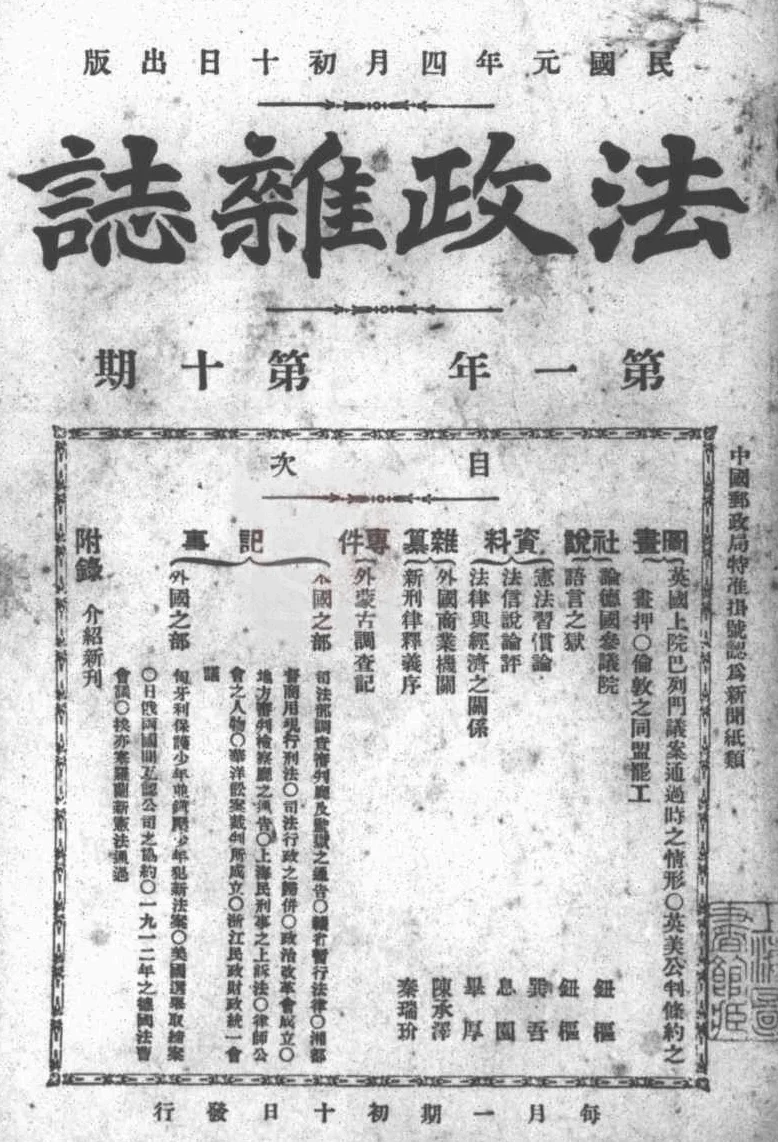 民國元年四月初十日出版
法政雜誌
第一年 第十期
中國郵政局特准掛號認為新聞紙類
目次
圖畫
英國上院巴列門議案通過時之情形〇英美公判條約之
畫押〇倫敦之同盟罷工
社說
論德國參議院 鈕樞
語言之獄 鈕樞
資料
憲法習慣論 巽吾
法信說論評 息園
法律與經濟之關係 畢厚
雜纂
外國商業機關 陳承澤
新刑律釋義序 秦瑞玠
專件
外蒙古調查記
記事
本國之部
司法部調查審判廳及監獄之通告〇續省暫行法律〇湘都
督商用現行刑法〇司法行政之歸併〇政治改革會成立〇
地方審判檢察廳之通告〇上海民刑事之上訴法〇律師公
會之人物〇華洋訟案裁判所成立〇浙江民政財政統一會
議
外國之部
匈牙利保護少年並鎮壓少年犯新法案〇美國選舉取締案
〇日俄兩國關於認公司之協約〇一九一二年之德國法曹
會議〇挨亦塞羅蘭新憲法通過
附錄
介紹新刊
每月一期初十日發行